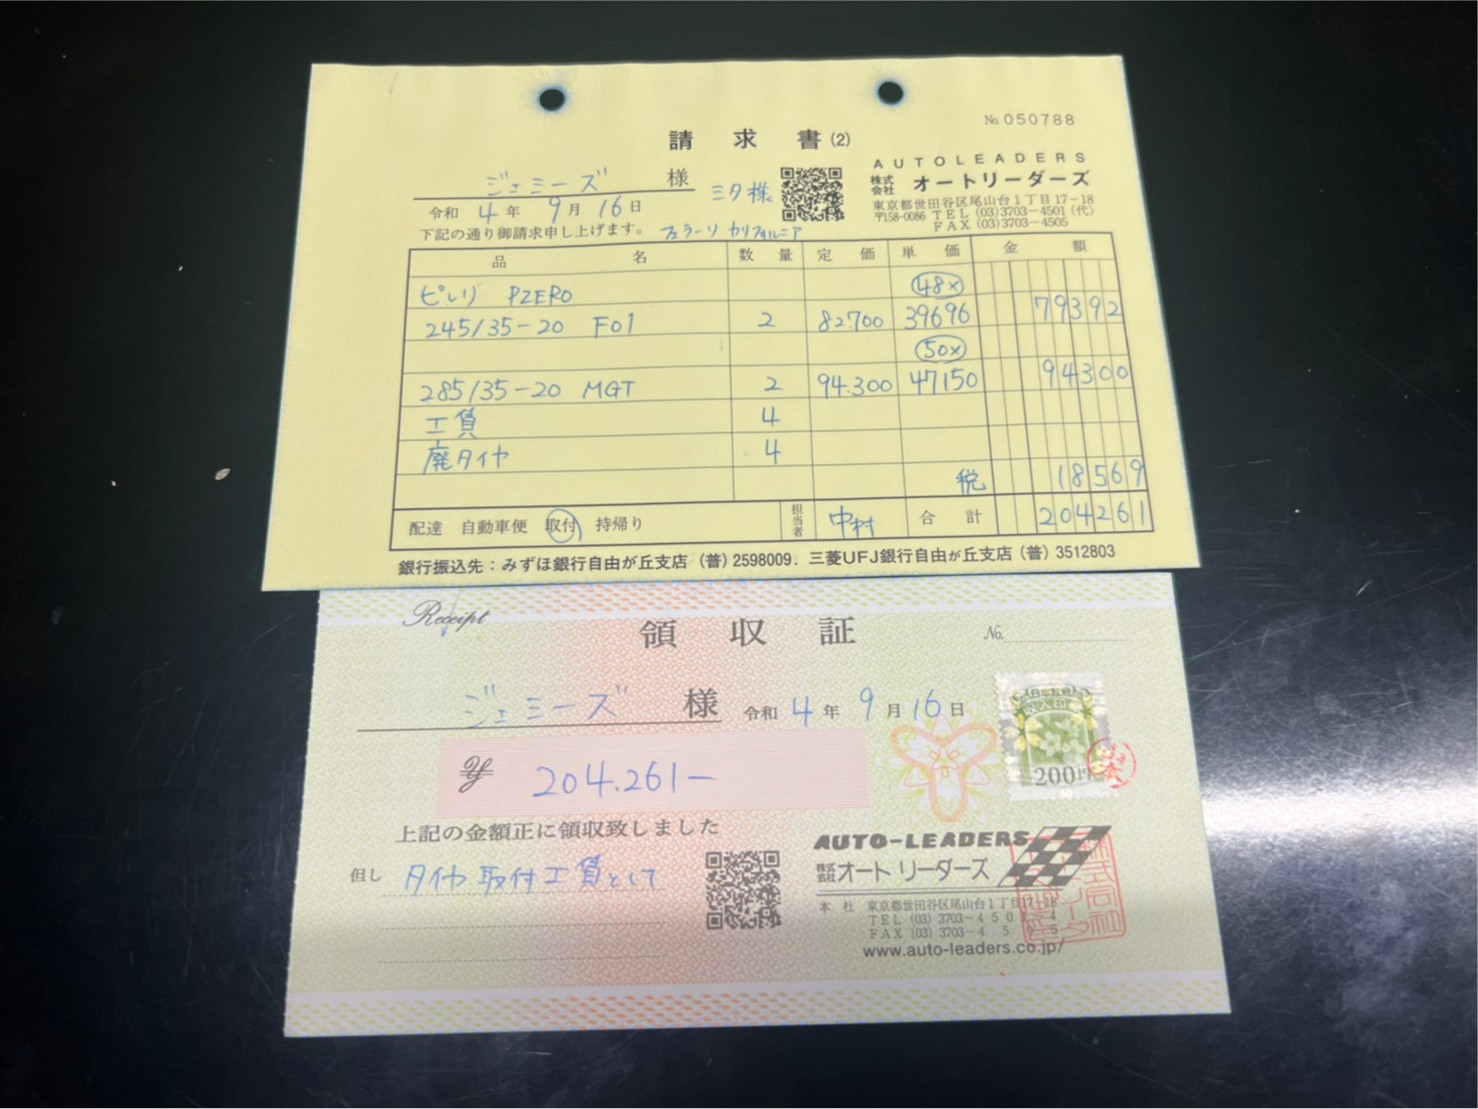 No.050788
請求書(2)
AUTOLEADERS
株式会社 オートリーダーズ
東京都世田谷区尾山台1丁目17-18
〒158-0086 TEL (03)3703-4501(代)
FAX (03)3703-4505
ジェミーズ 様 ミタ様
令和 4年 9月 16日
下記の通り御請求申し上げます。 フェラーリ カリフォルニア
品名 数量 定価 単価 金額
ピレリ PZERO 48×
245/35-20 F01 2 82.700 39696 79392
50×
285/35-20 MGT 2 94.300 47150 94300
工賃 4
廃タイヤ 4
税 18569
配達 自動車便 取付 持帰り 担当者 中村 合計 204261
銀行振込先:みずほ銀行自由が丘支店(普)2598009. 三菱UFJ銀行自由が丘支店(普)3512803
Receipt
領収証
No.
ジェミーズ 様 令和 4年 9月 16日
200円
¥ 204.261-
上記の金額正に領収致しました
但し タイヤ取付工賃として
AUTO-LEADERS
株式会社 オートリーダーズ
本社 東京都世田谷区尾山台1丁目17-18
TEL (03) 3703-4501~4
FAX (03) 3703-4505
www.auto-leaders.co.jp/